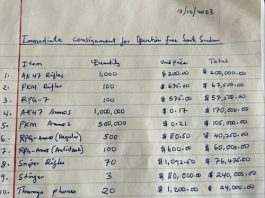 3/12/2023
Immediate Consignment for Operation free South Sudan
Item Quantity Unit Price Total
1. AK47 Rifles 1,000 $200.00 $200,000.00
2. PKM Rifles 100 $675.00 $67,500.00
3. RPG-7 100 $575.00 $57,500.00
4. AK47 Ammos 1,000,000 $0.17 $170,000.00
5. PKM Ammos 500,000 $0.21 $105,000.00
6. RPG-Ammo (Regular) 500 $80.50 $40,250.00
7. RPG-Ammo (Antitank) 100 $600.00 $60,000.00
8. Sniper Rifles 70 $1,092.50 $76,475.00
9. Stinger 3 $80,000.00 $240,000.00
10. Thuraya phones 20 $1,200.00 $24,000.00